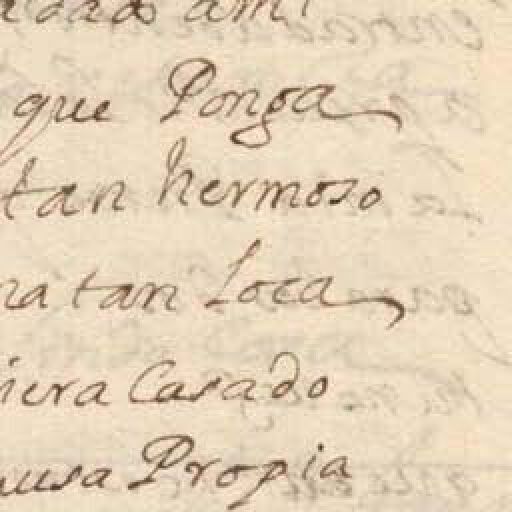 ami
que Ponga
tan hermoso
na tan loca
iera Casado
ausa Propia